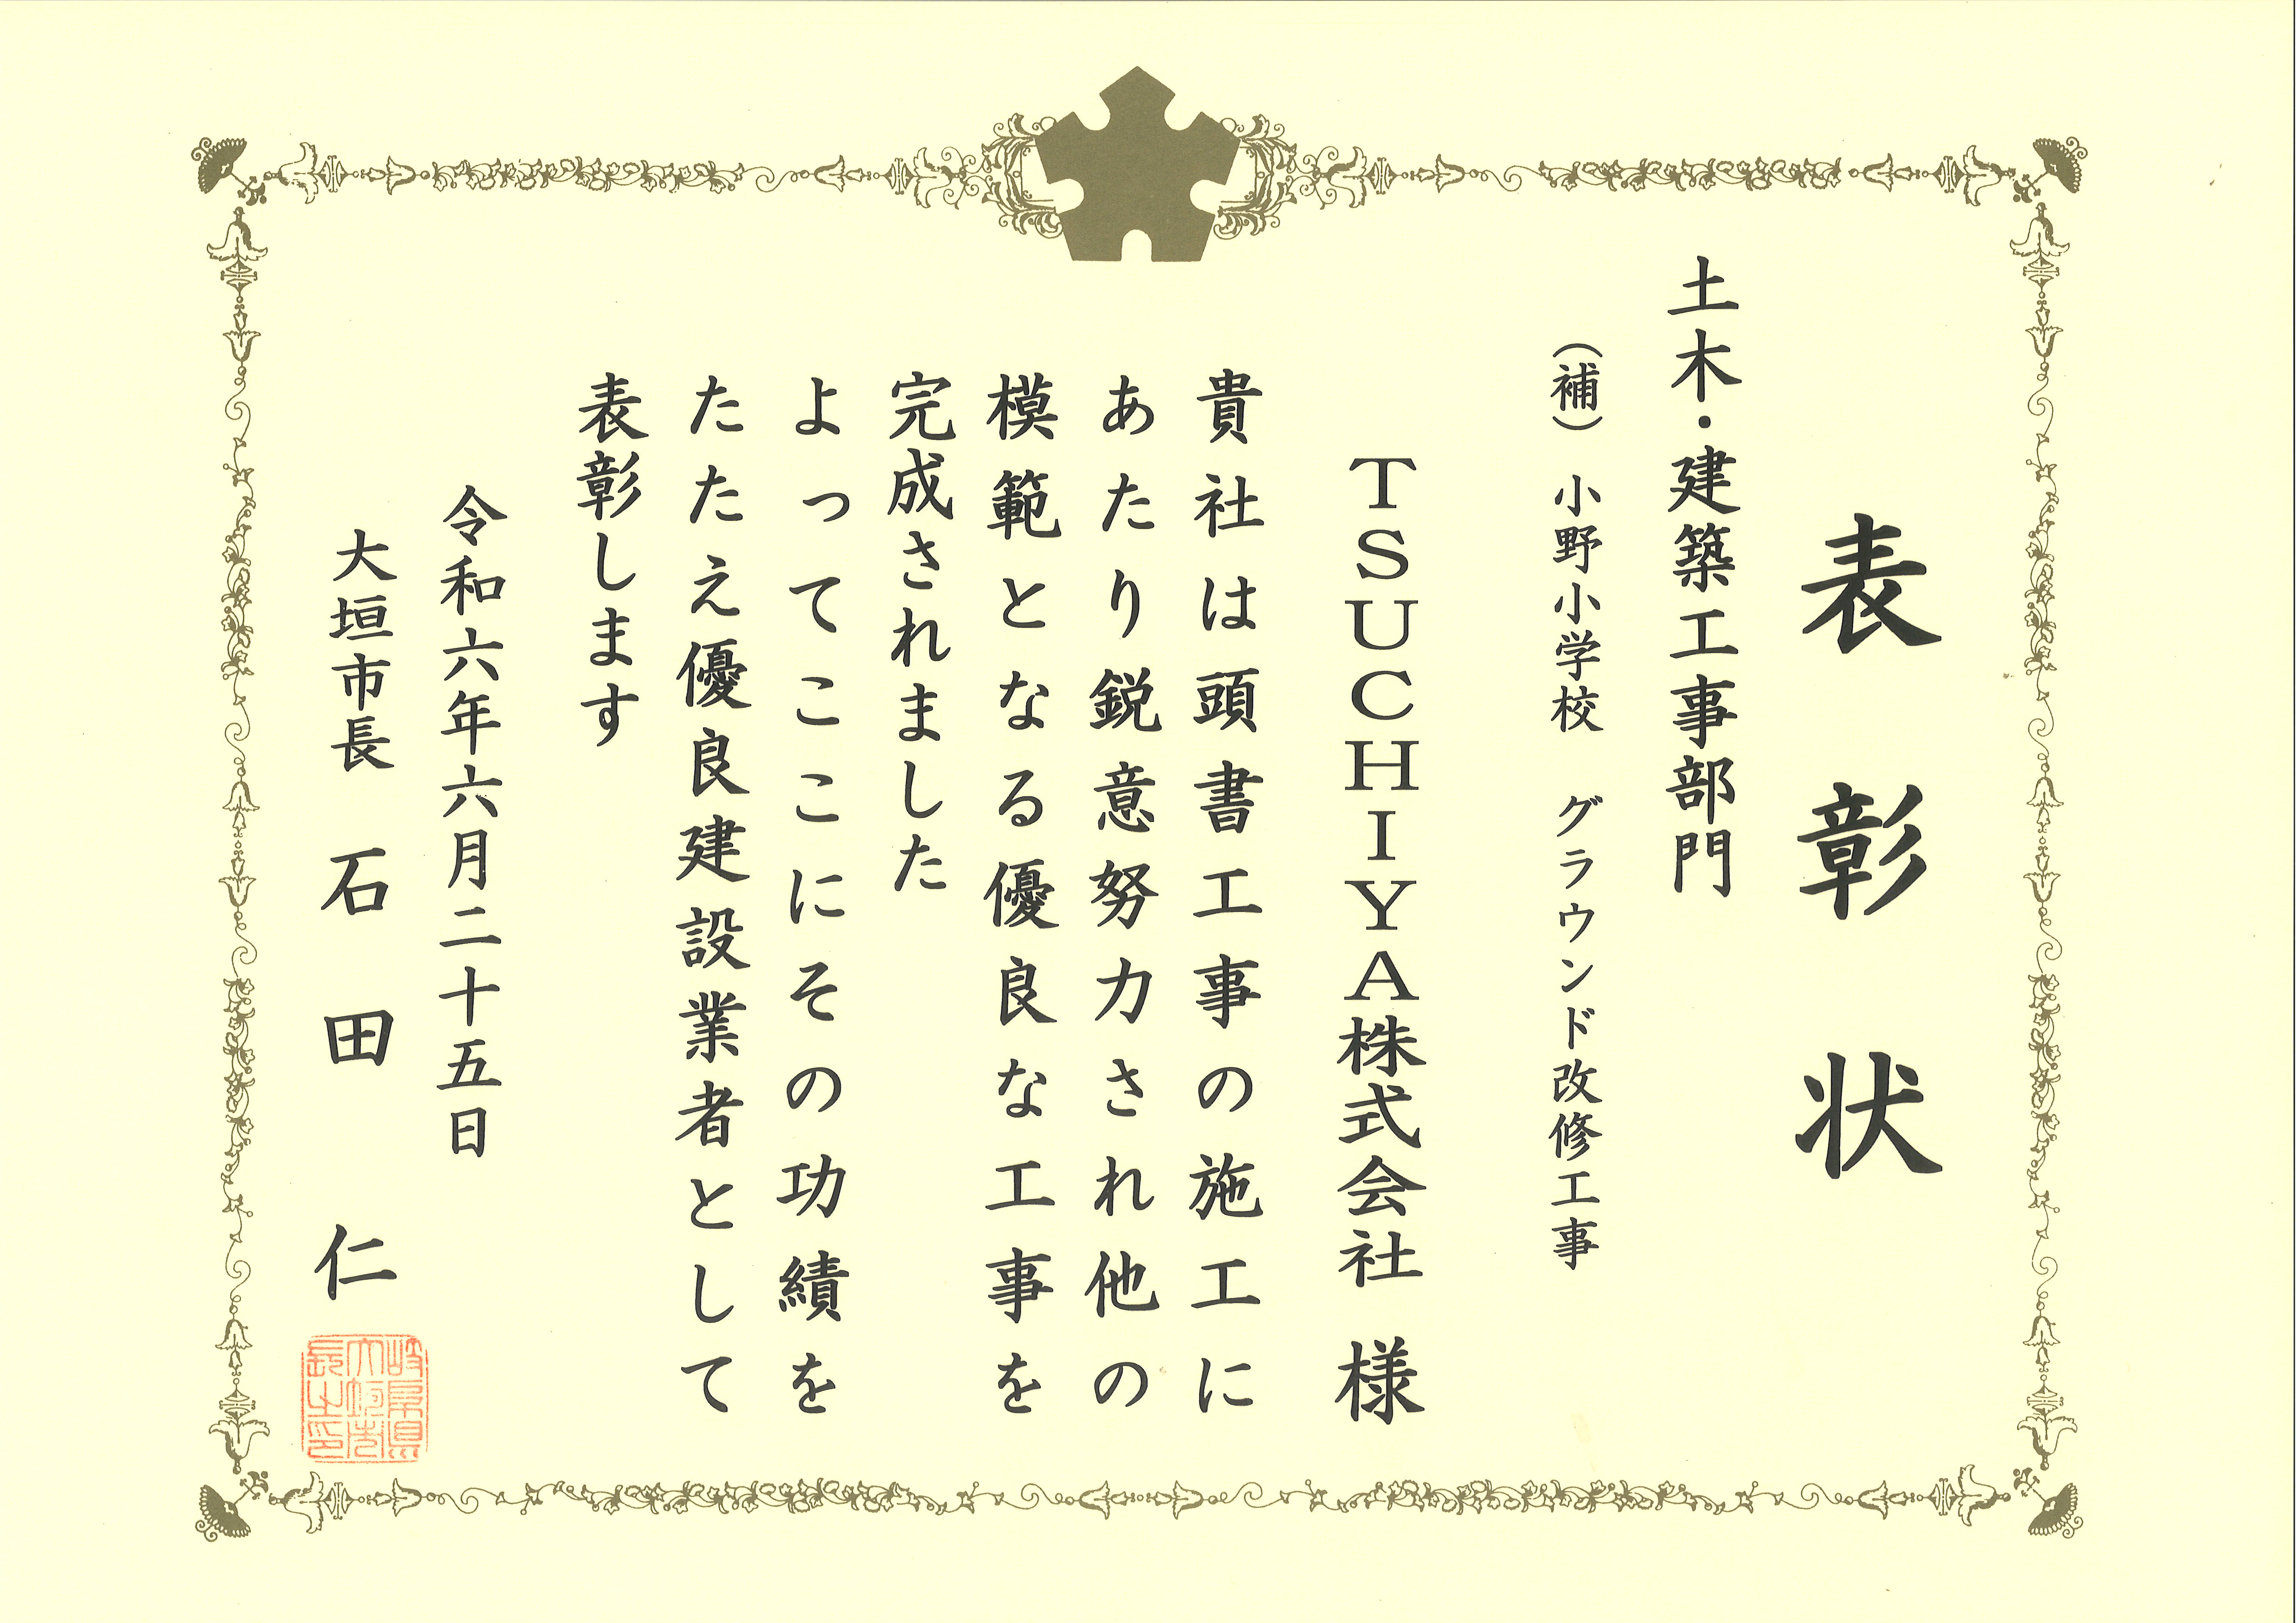 表彰状
土木・建築工事部門
（補）　小野小学校　グラウンド改修工事
TSUCHIYA株式会社　様
貴社は頭書工事の施工に
あたり鋭意努力され他の
模範となる優良な工事を
完成されました
よってここにその功績を
たたえ優良建設業者として
表彰します
令和六年六月二十五日
大垣市長　石田　仁
岐阜県
大垣市
長之印